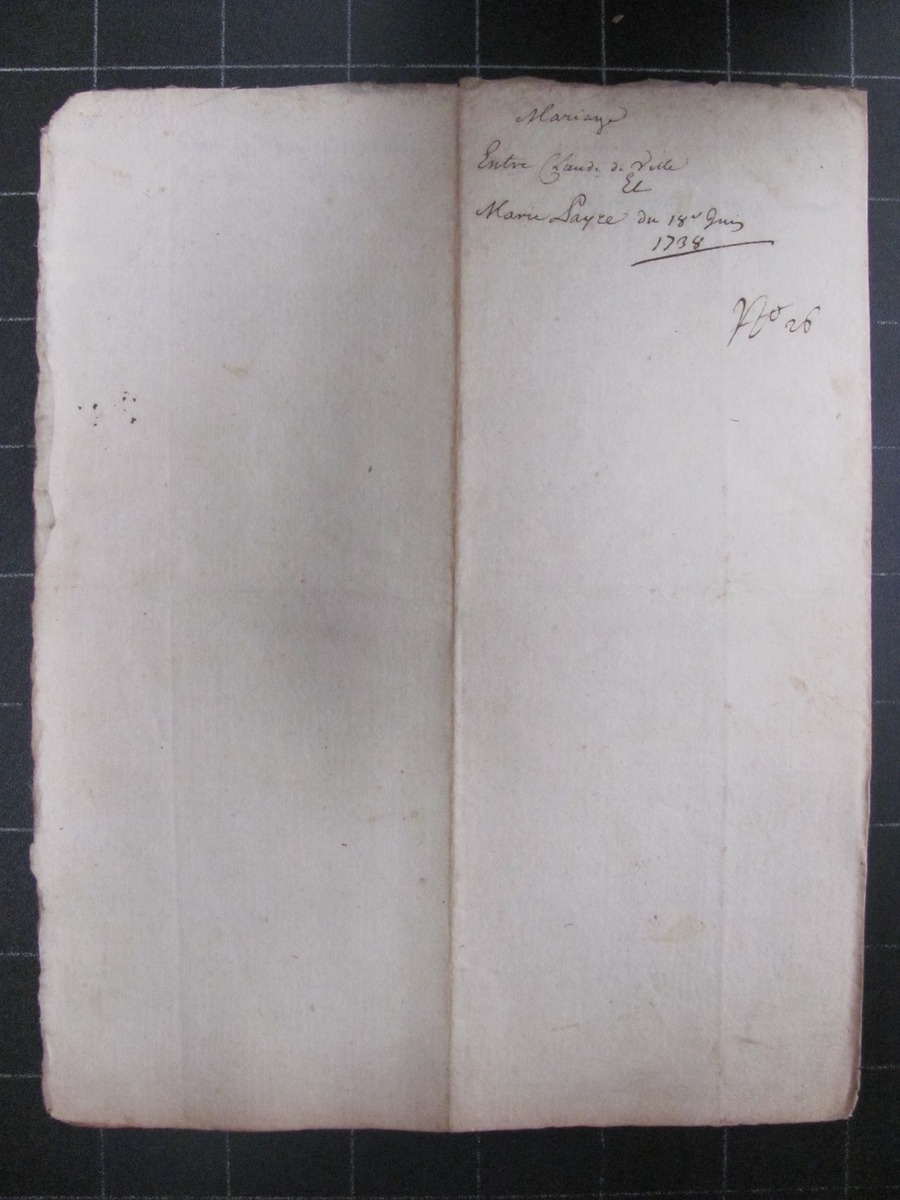 Mariage
Entre Claude de Ville
Et
Marie Payre du 18e Juin
1738
No 26